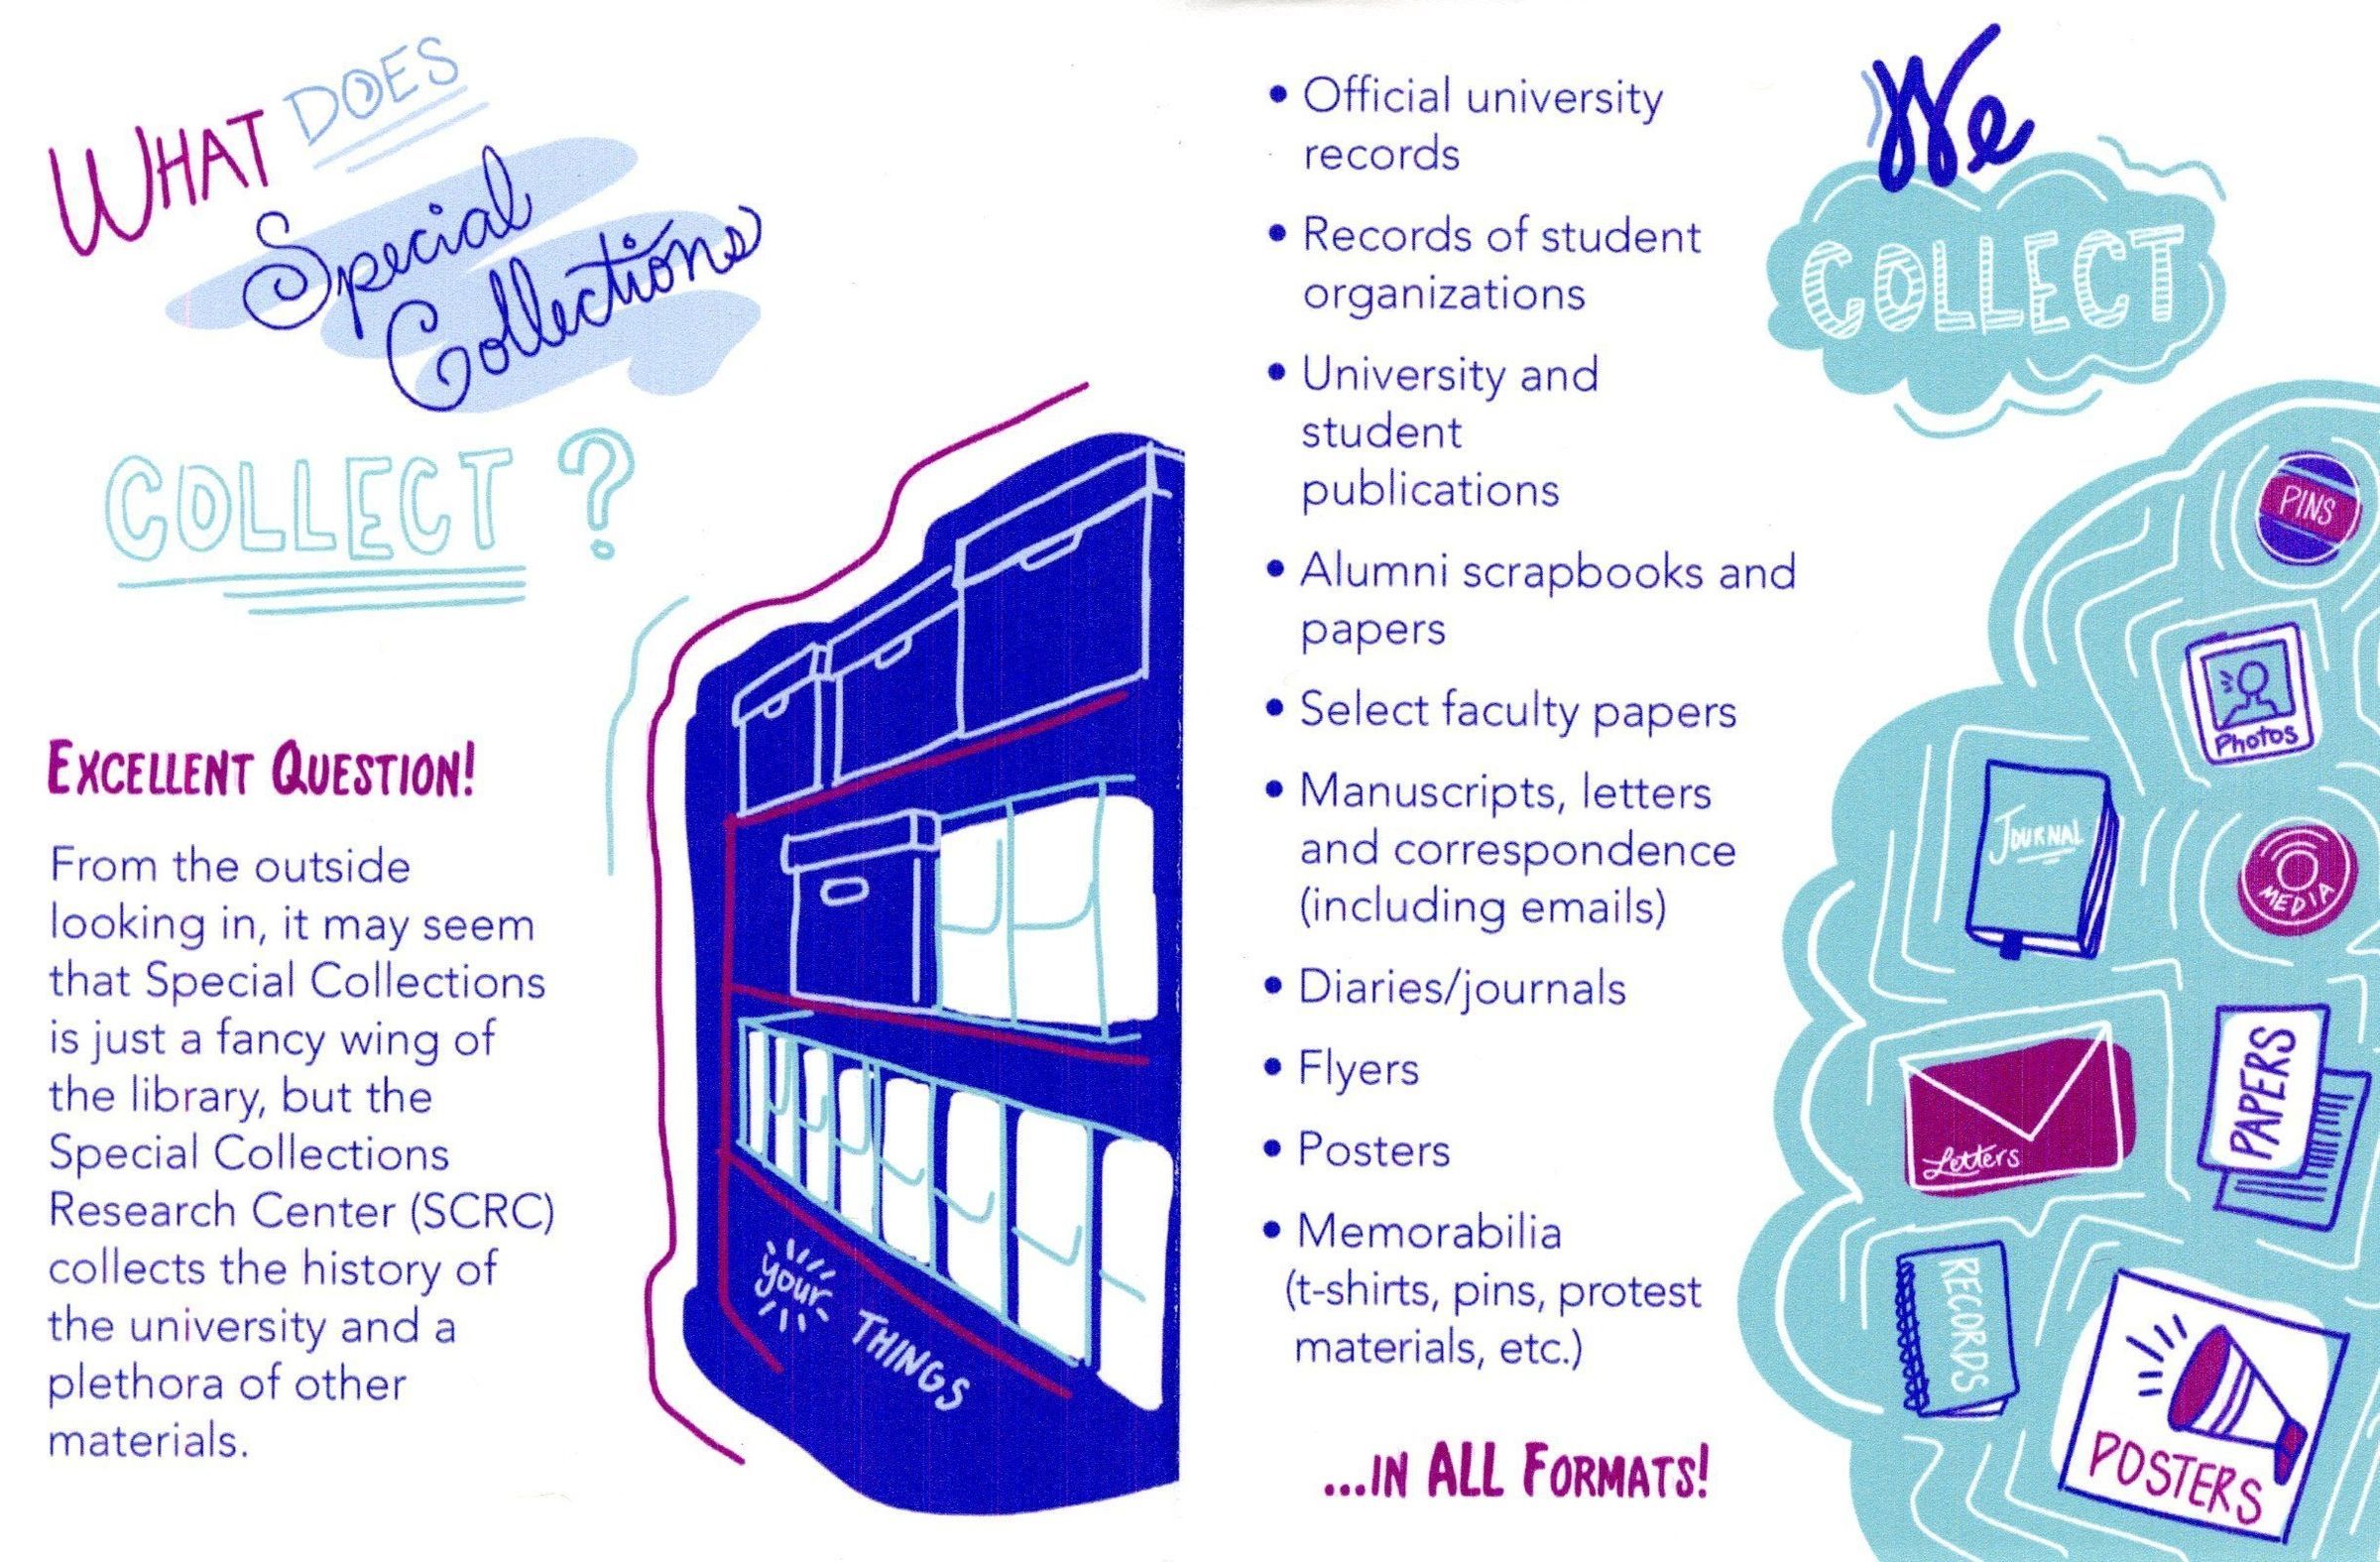 WHAT DOES
Special
Collections
COLLECT ?
EXCELLENT QUESTION!
From the outside
looking in, it may seem
that Special Collections
is just a fancy wing of
the library, but the
Special Collections
Research Center (SCRC)
collects the history of
the university and a
plethora of other
materials.
your THINGS
• Official university
records
• Records of student
organizations
• University and
student
publications
• Alumni scrapbooks and
papers
• Select faculty papers
• Manuscripts, letters
and correspondence
(including emails)
• Diaries/journals
• Flyers
• Posters
• Memorabilia
(t-shirts, pins, protest
materials, etc.)
...IN ALL FORMATS!
We
COLLECT
PINS
Photos
JOURNAL
MEDIA
PAPERS
Letters
RECORDS
POSTERS